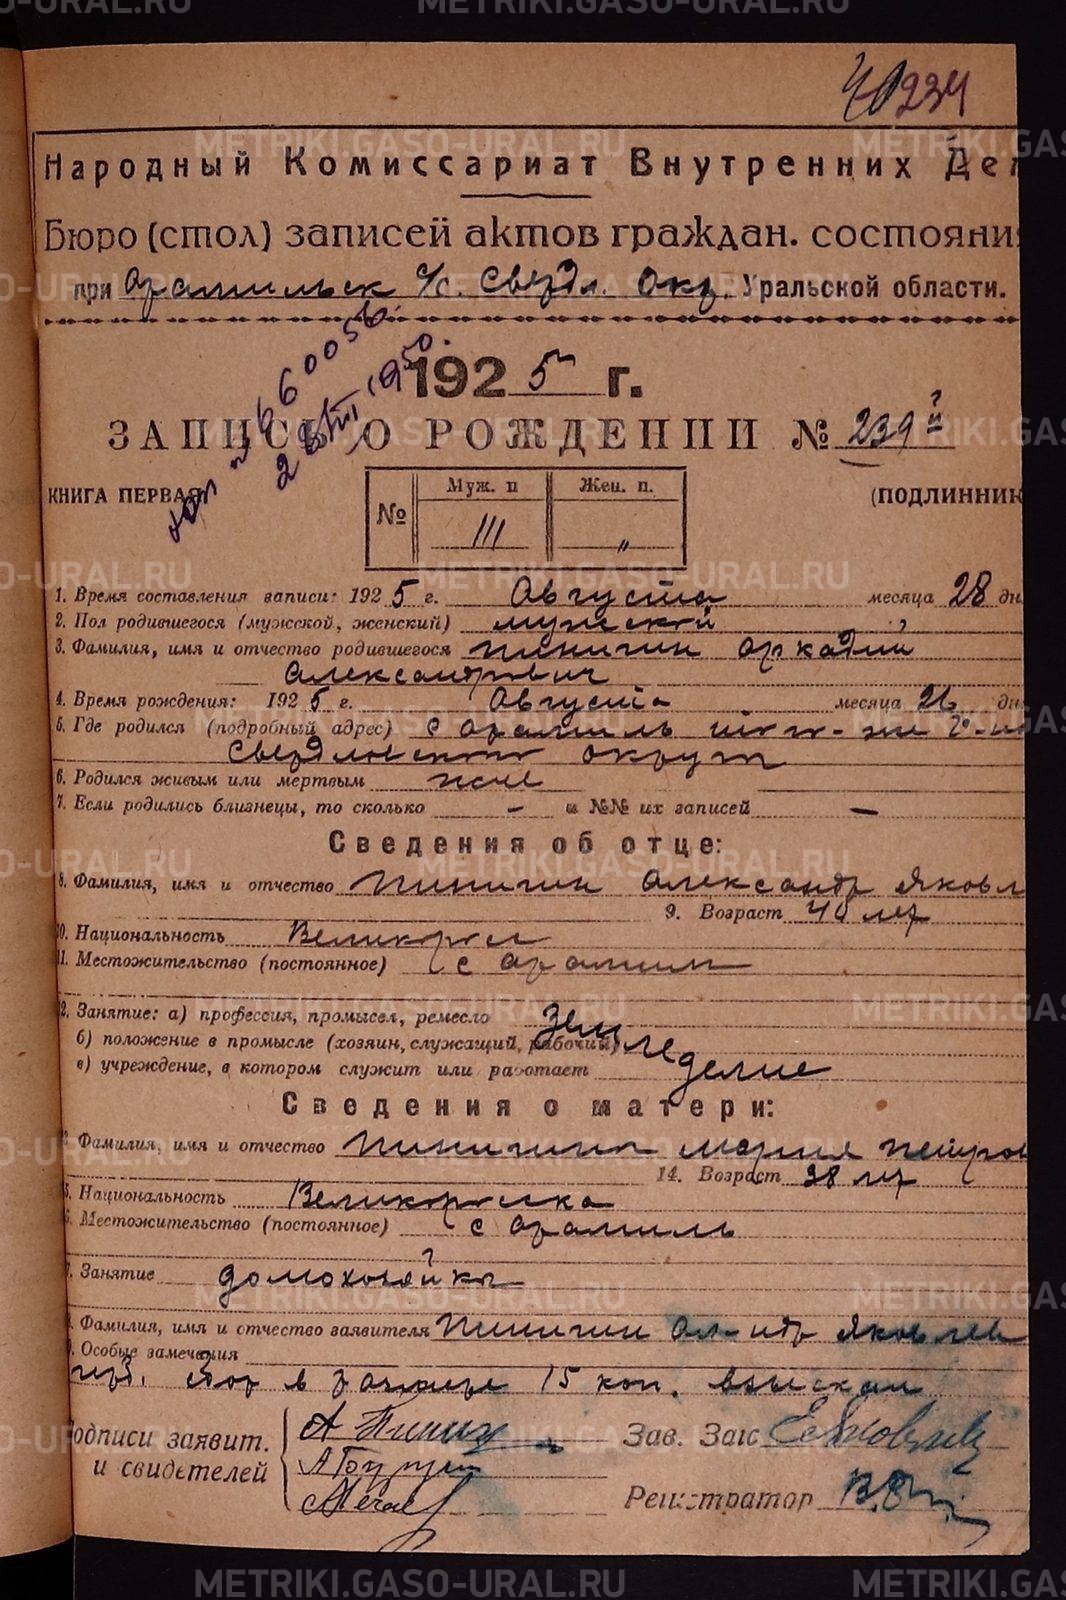 40234
Народный Комиссариат Внутренних Дел
Бюро (стол) записей актов граждан. состояния
при Арамильск с/с. Свердл. Окр. Уральской области.
660056
28/VIII 1950.
1925 г.
ЗАПИСЬ О РОЖДЕНИИ № 239й
КНИГА ПЕРВАЯ (ПОДЛИННИК
№ Муж. п Жен. п.
111 „
1. Время составления записи: 1925 г. Августа месяца 28 дн
2. Пол родившегося (мужской, женский) мужской
3. Фамилия, имя и отчество родившегося Пинигин Аркадий
Александрович
4. Время рождения: 1925 г. Августа месяца 26 дн
5. Где родился (подробный адрес) с Арамиль того-же
Свердловского округа
6. Родился живым или мертвым жив
7. Если родились близнецы, то сколько - и №№ их записей —
Сведения об отце:
8. Фамилия, имя и отчество Пинигин Александр Яковл
9. Возраст 40 лет
10. Национальность Великоросс
11. Местожительство (постоянное) с Арамиль
12. Занятие: а) профессия, промысел, ремесло
б) положение в промысле (хозяин, служащий, рабочий)
в) учреждение, в котором служит или работает
Земледелие
Сведения о матери:
Фамилия, имя и отчество Пинигина Мария Петров
14. Возраст 38 лет
5. Национальность Великоросска
Местожительство (постоянное) с Арамиль
Занятие домохозяйка
Фамилия, имя и отчество заявителя Пинигин Ал-др Яковлев
Особые замечания
герб. сбор в размере 15 коп. взыскан
одписи заявит. А Пиниг Зав. Загс
и свидетелей
Регистратор
METRIKI.GASO-URAL.RU